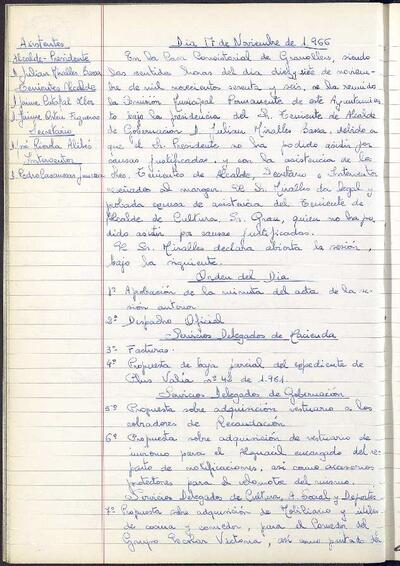 Asistentes
Alcalde-Presidente
D. Julian Miralles Bassa
Tenientes Alcalde
D. Jaime
D. Jaime Arteu Figueras
Secretario
D. José Rincha
Interventor
D. Pedro Casanovas
Dia 17 de Noviembre de 1.966
En la Casa Consistorial de Granollers, siendo
las veintidos horas del dia diez y siete de noviem-
bre de mil novecientos sesenta y seis, se ha reunido
la Comision Municipal Permanente de este Ayuntamien-
to bajo la presidencia del Sr. Teniente de Alcalde
de Gobernacion D. Julian Miralles Bassa, debido a
que el Sr. Presidente no ha podido asistir por
causas justificadas, y con la asistencia de los
Sres. Tenientes de Alcalde, Secretario e Interventor
reseñados al margen. El Sr. Miralles da legal y
probada excusa de asistencia del Teniente de
Alcalde de Cultura, Sr. Grau, quien no ha po-
dido asistir por causas justificadas.
El Sr. Miralles declara abierta la sesión,
bajo la siguiente:
Orden del Dia
1º Aprobación de la minuta del acta de la se-
sión anterior
2º Despacho Oficial
Servicios Delegados de Hacienda
3º Facturas.
4º Propuesta de baja parcial del expediente de
Plus Valia nº 42 de 1.961.
Servicios Delegados de Gobernación
5º Propuesta sobre adquisición vestuario a los
cobradores de Recaudación
6º Propuesta sobre adquisición de vestuario de
invierno para el Alguacil encargado del re-
parto de notificaciones, así como accesorios
protectores para el velomotor del mismo.
Servicios Delegados de Cultura, A. Social y Deportes.
7º Propuesta sobre adquisición de Mobiliario y útiles
de cocina y comedor, para el Comedor del
Grupo Escolar Victoria, así como pintado de